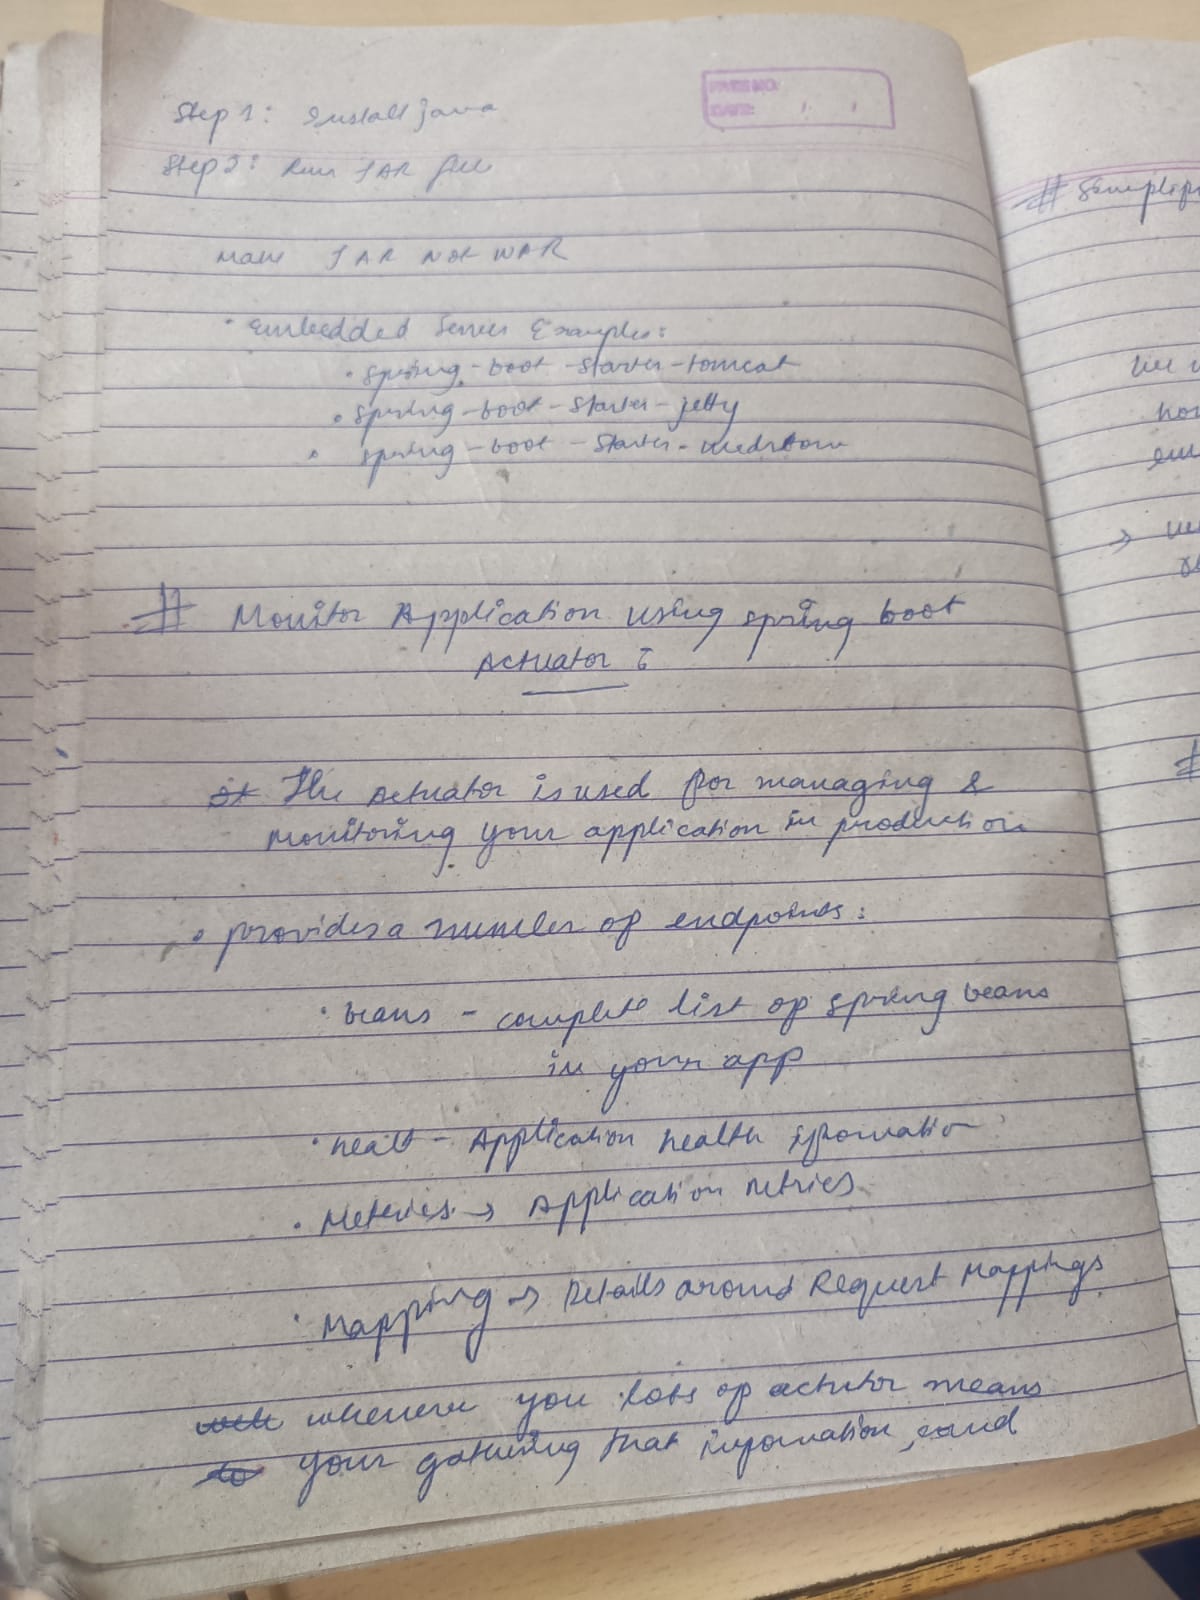 PAGE NO:
DATE: / /
Step 1: Install Java
Step 2: Run JAR file
Make JAR Not WAR
• Embedded Server Examples:
• spring-boot-starter-tomcat
• spring-boot-starter-jetty
• spring-boot-starter-
# Monitor Application using spring boot
Actuator :
The Actuator is used for managing &
monitoring your application in production
• provides a number of endpoints:
• beans - complete list of spring beans
in your app
• healt - Application health information
• Metrics → Application metrics
• Mapping → Details around Request Mappings
whenever you lots of actutor means
your gathering that information, and
#
→
#